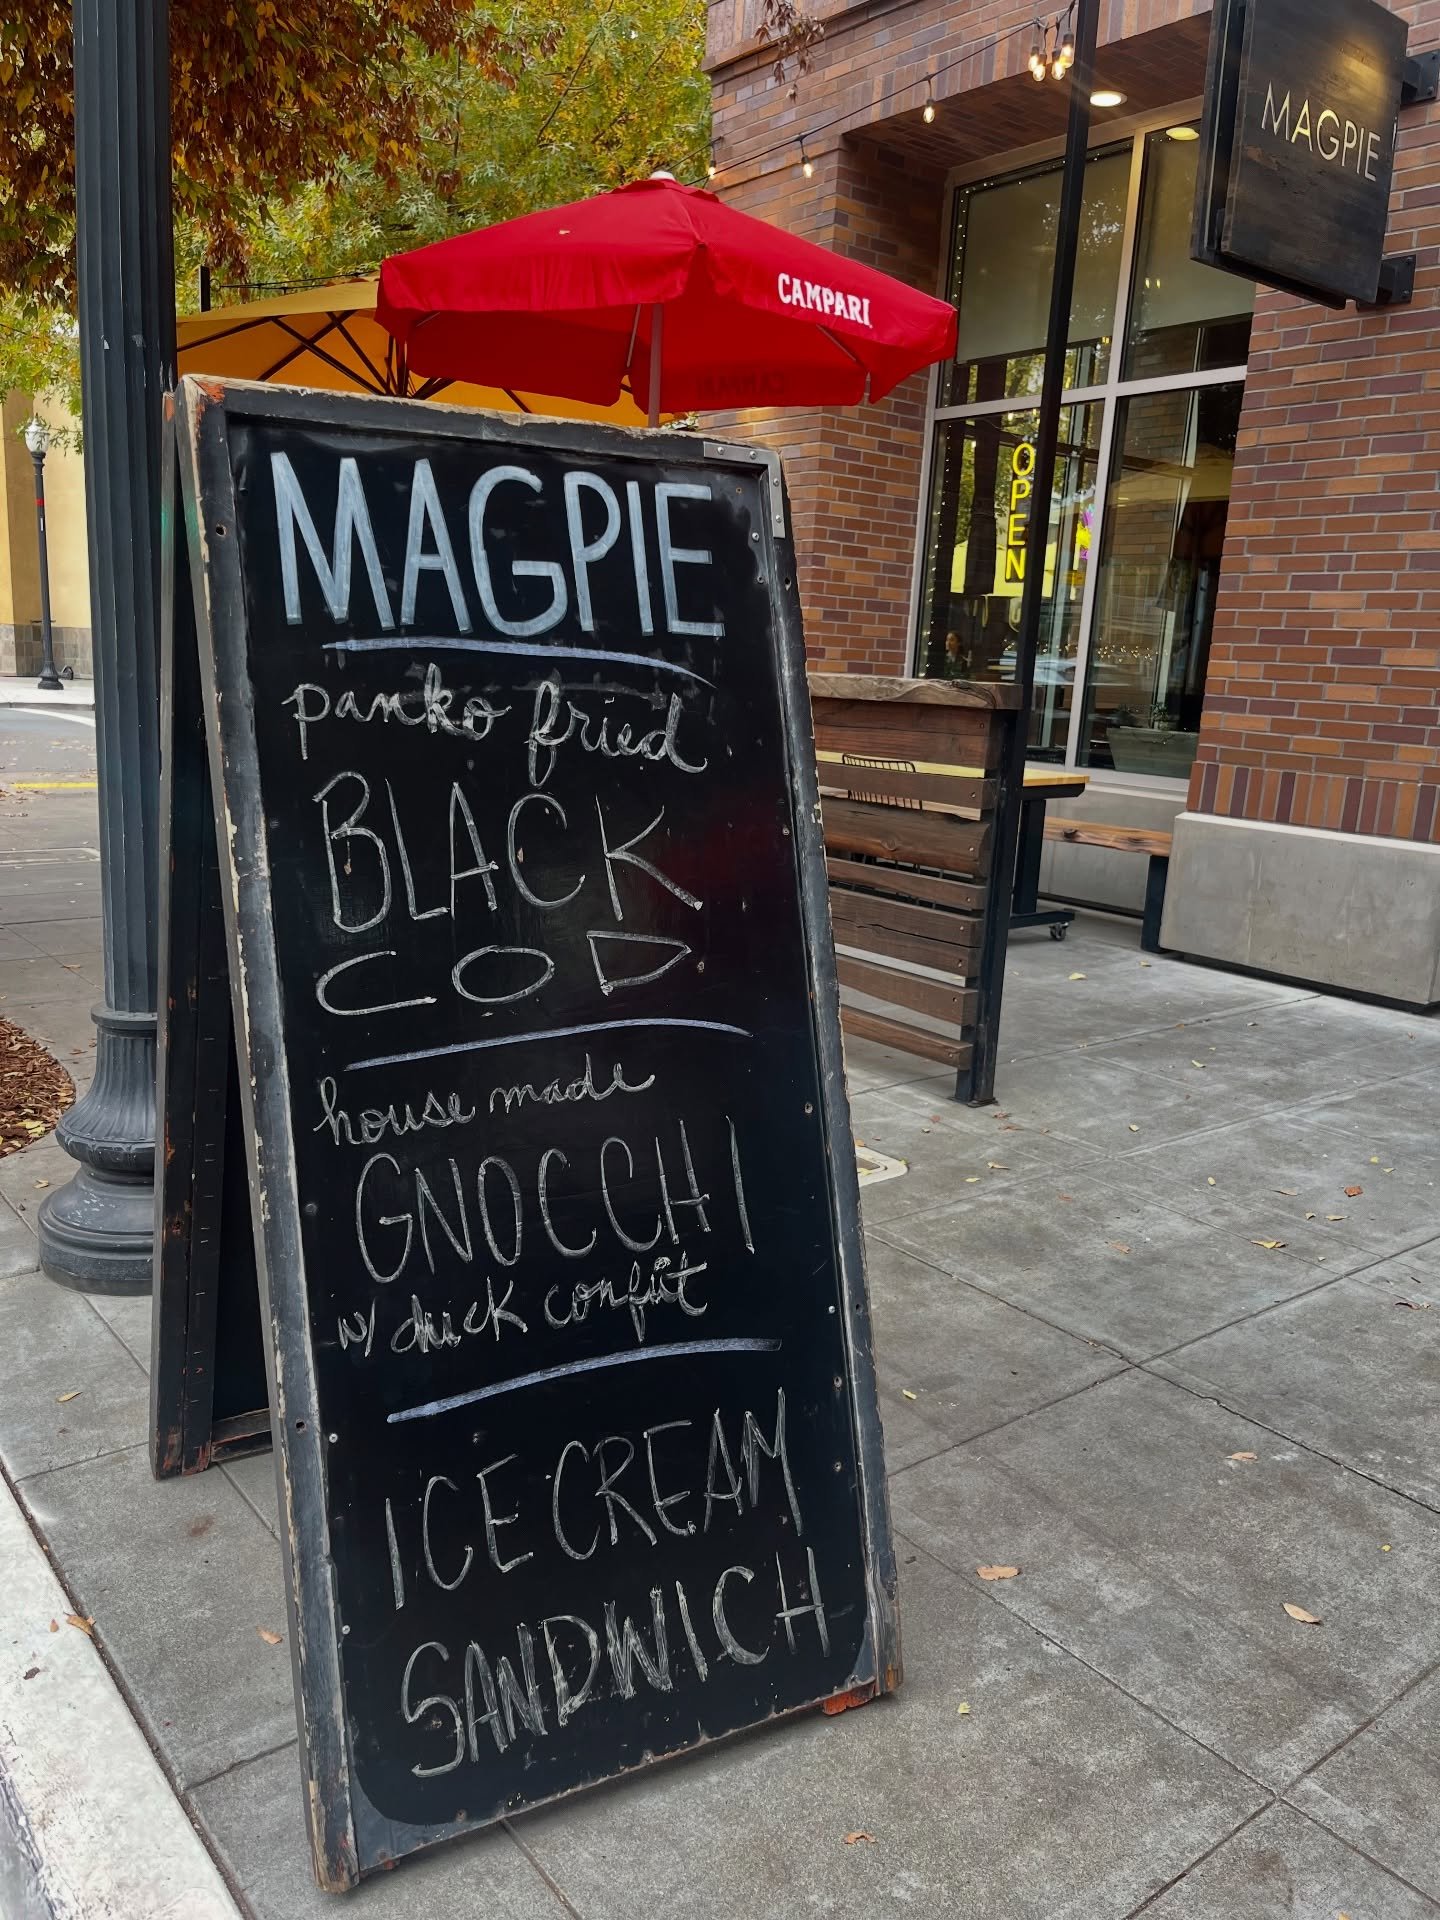 MAGPIE
CAMPARI
OPEN
MAGPIE
panko fried
BLACK
COD
house made
GNOCCHI
w/ duck confit
ICE CREAM
SANDWICH